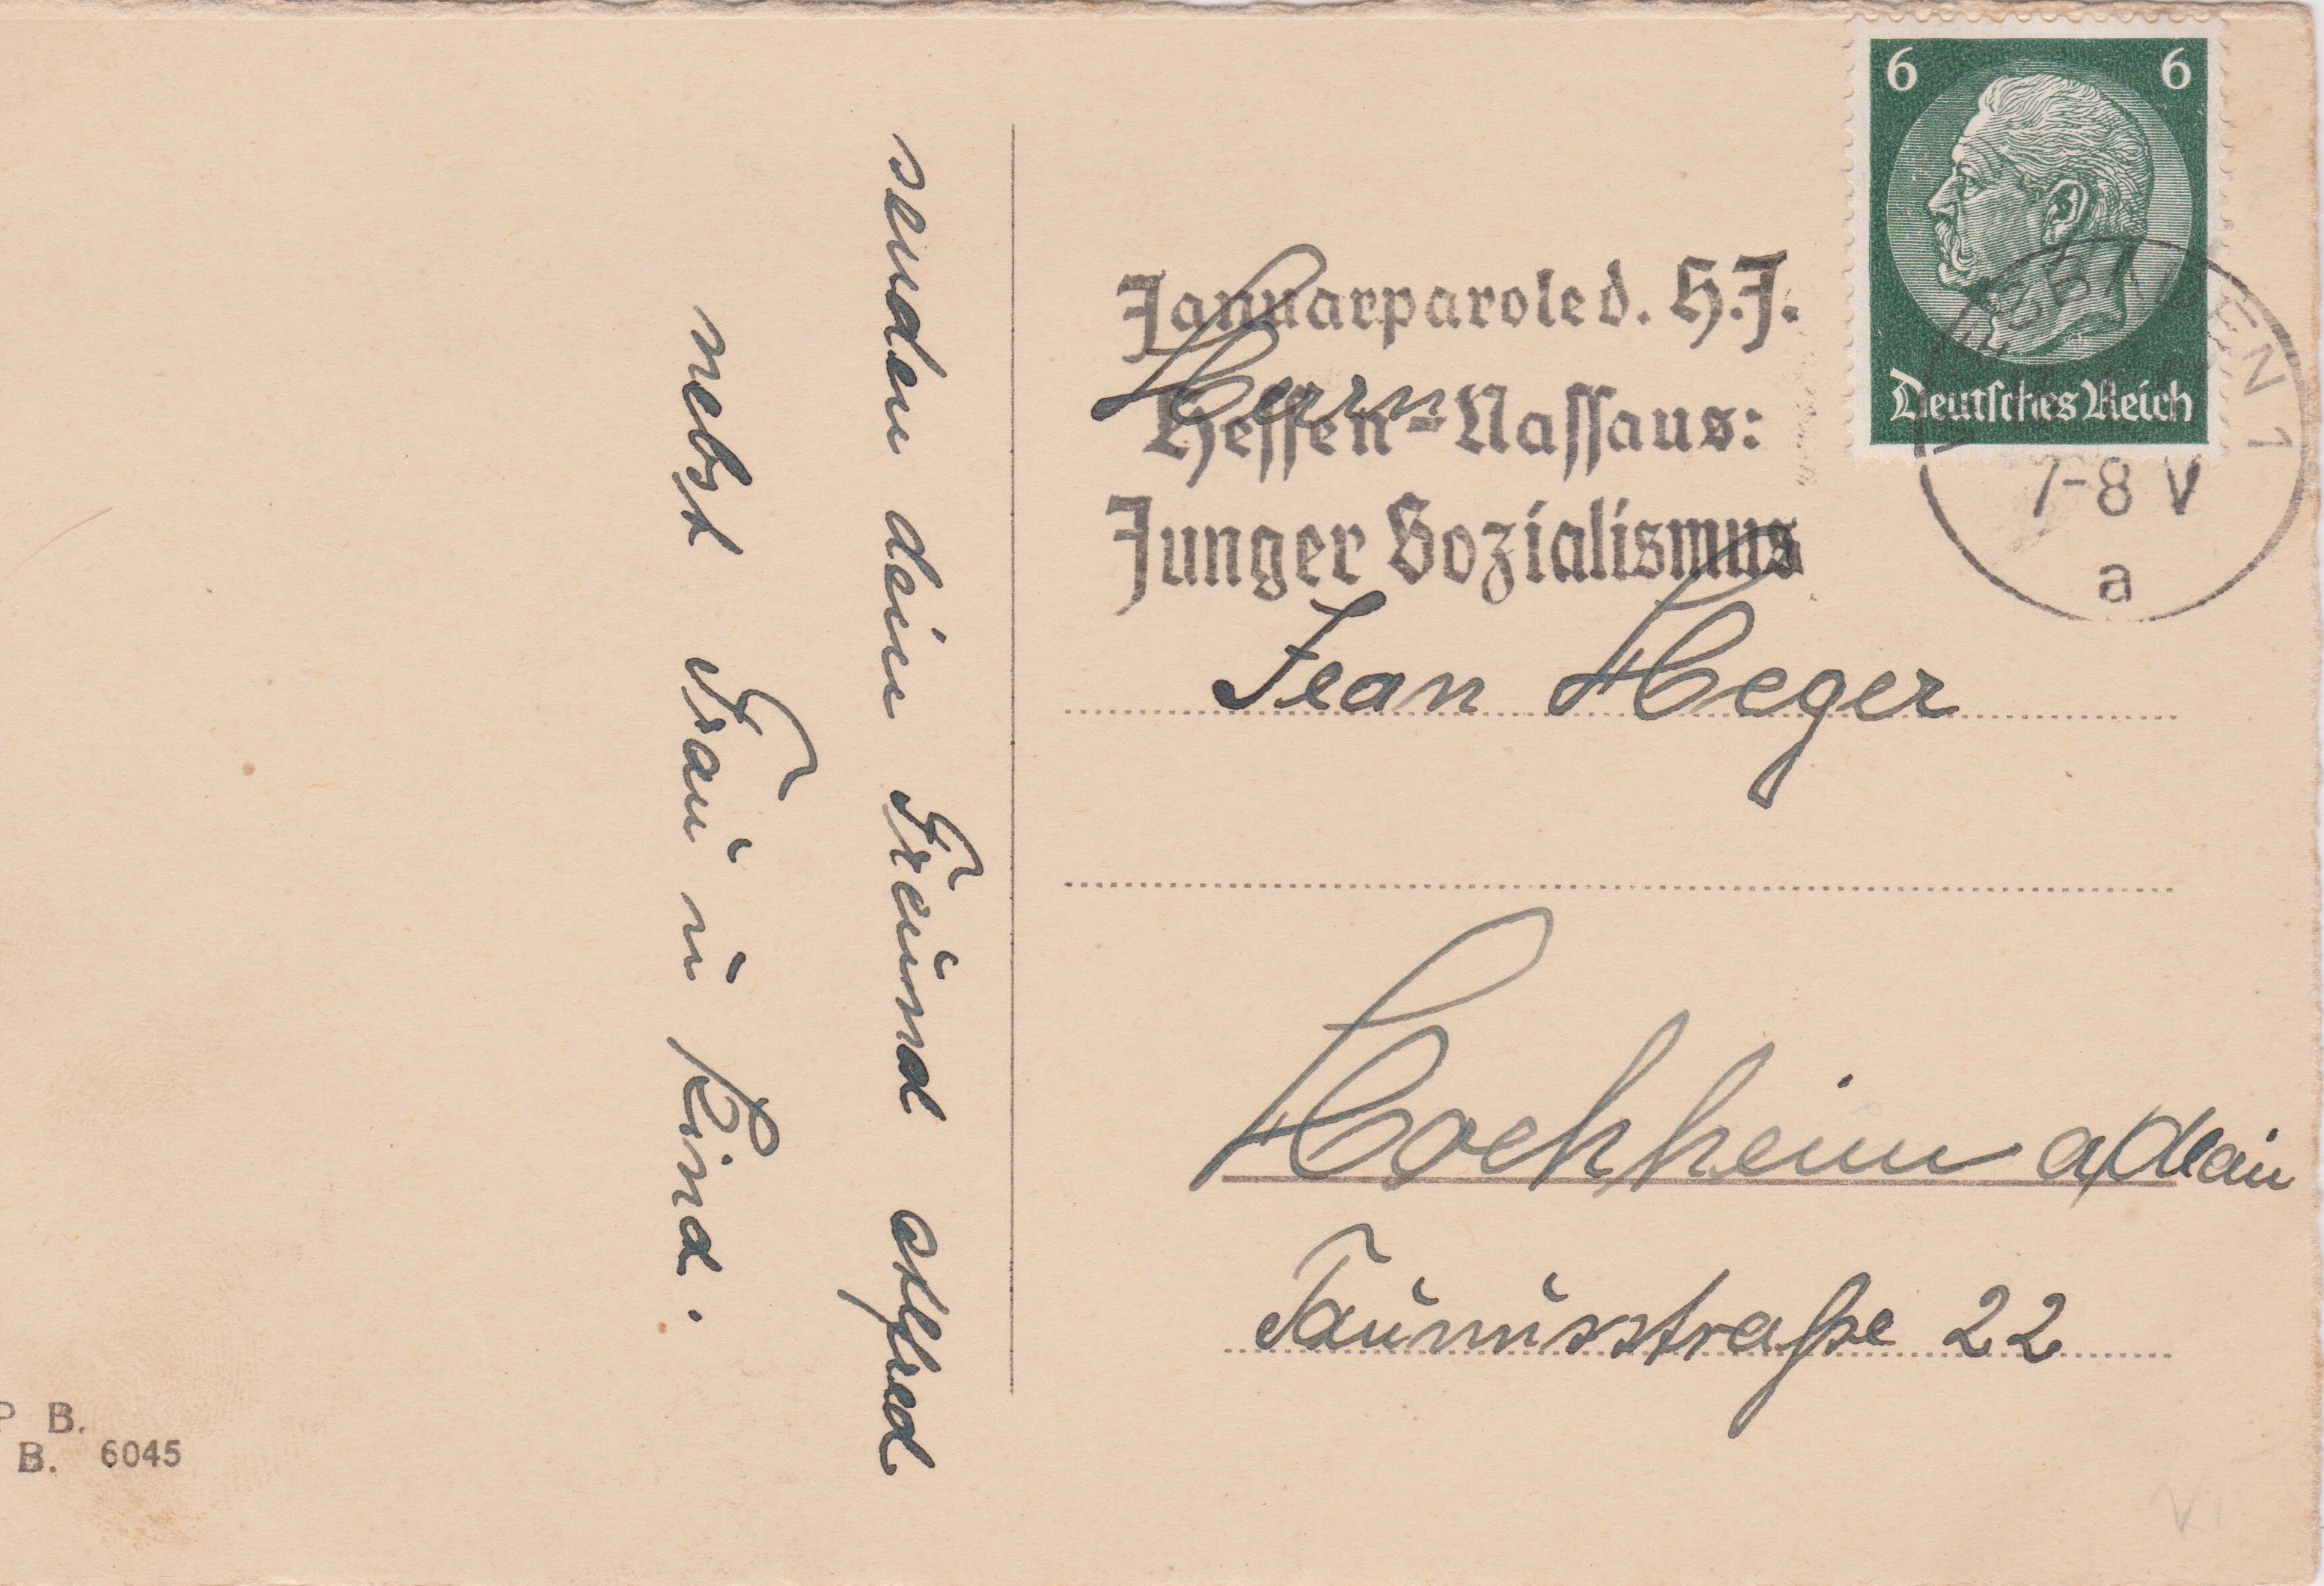 senden dein Freund Alfred
nebst Frau u Kind.
6 6
Deutsches Reich
WIESBADEN 1
7-8 V
a
Januarparole d. H.J.
Hessen-Nassaus:
Junger Sozialismus
Herrn
Jean Heger
Hochheim a/Main
Taunusstraße 22
P B.
B. 6045